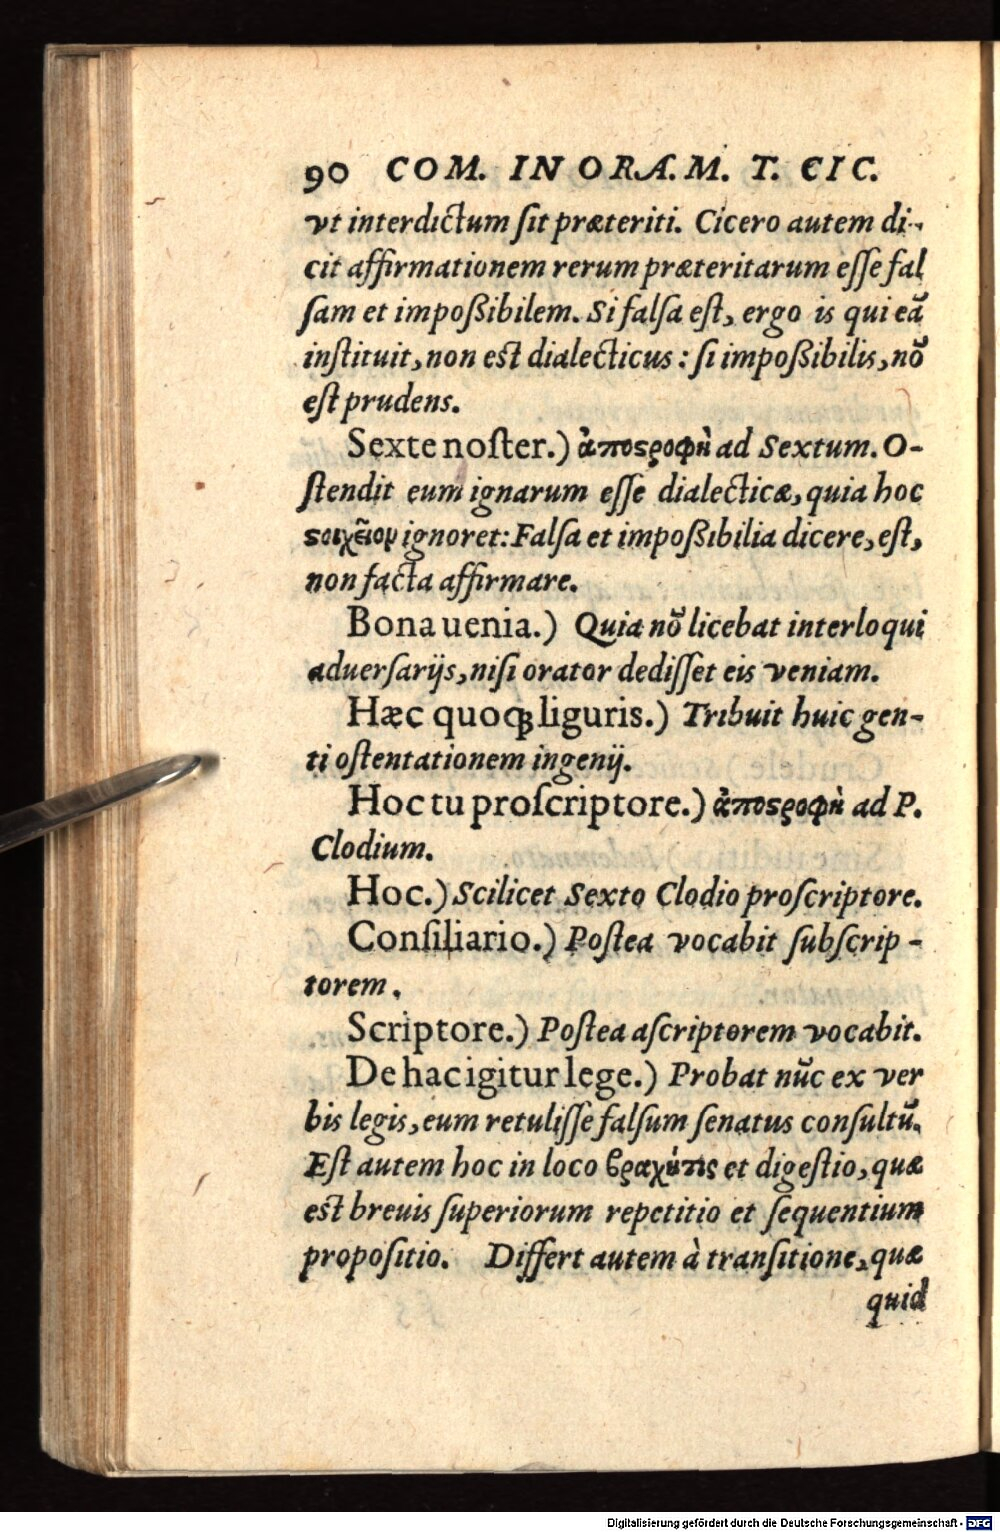 90 COM. IN ORA. M. T. CIC.
vt interdictum ſit præteriti. Cicero autem di-
cit affirmationem rerum præteritarum eſſe fal
ſam et impoßibilem. Si falſa eſt, ergo is qui eā
inſtituit, non eſt dialecticus: ſi impoßibilis, nō
eſt prudens.
Sexte noſter.) ἀποςροφὴ ad Sextum. O-
ſtendit eum ignarum eſſe dialecticæ, quia hoc
ςοιχεῖον ignoret: Falſa et impoßibilia dicere, eſt,
non facta affirmare.
Bona uenia.) Quia nō licebat interloqui
aduerſarijs, niſi orator dediſſet eis veniam.
Hæc quoqꝫ liguris.) Tribuit huic gen-
ti oſtentationem ingenij.
Hoc tu proſcriptore.) ἀποςροφὴ ad P.
Clodium.
Hoc.) Scilicet Sexto Clodio proſcriptore.
Conſiliario.) Poſtea vocabit ſubſcrip-
torem.
Scriptore.) Poſtea aſcriptorem vocabit.
De hac igitur lege.) Probat nūc ex ver
bis legis, eum retuliſſe falſum ſenatus conſultū.
Eſt autem hoc in loco βραχύτης et digeſtio, quæ
eſt breuis ſuperiorum repetitio et ſequentium
propoſitio. Differt autem à tranſitione, quæ
quid
Digitalisierung gefördert durch die Deutsche Forschungsgemeinschaft - DFG